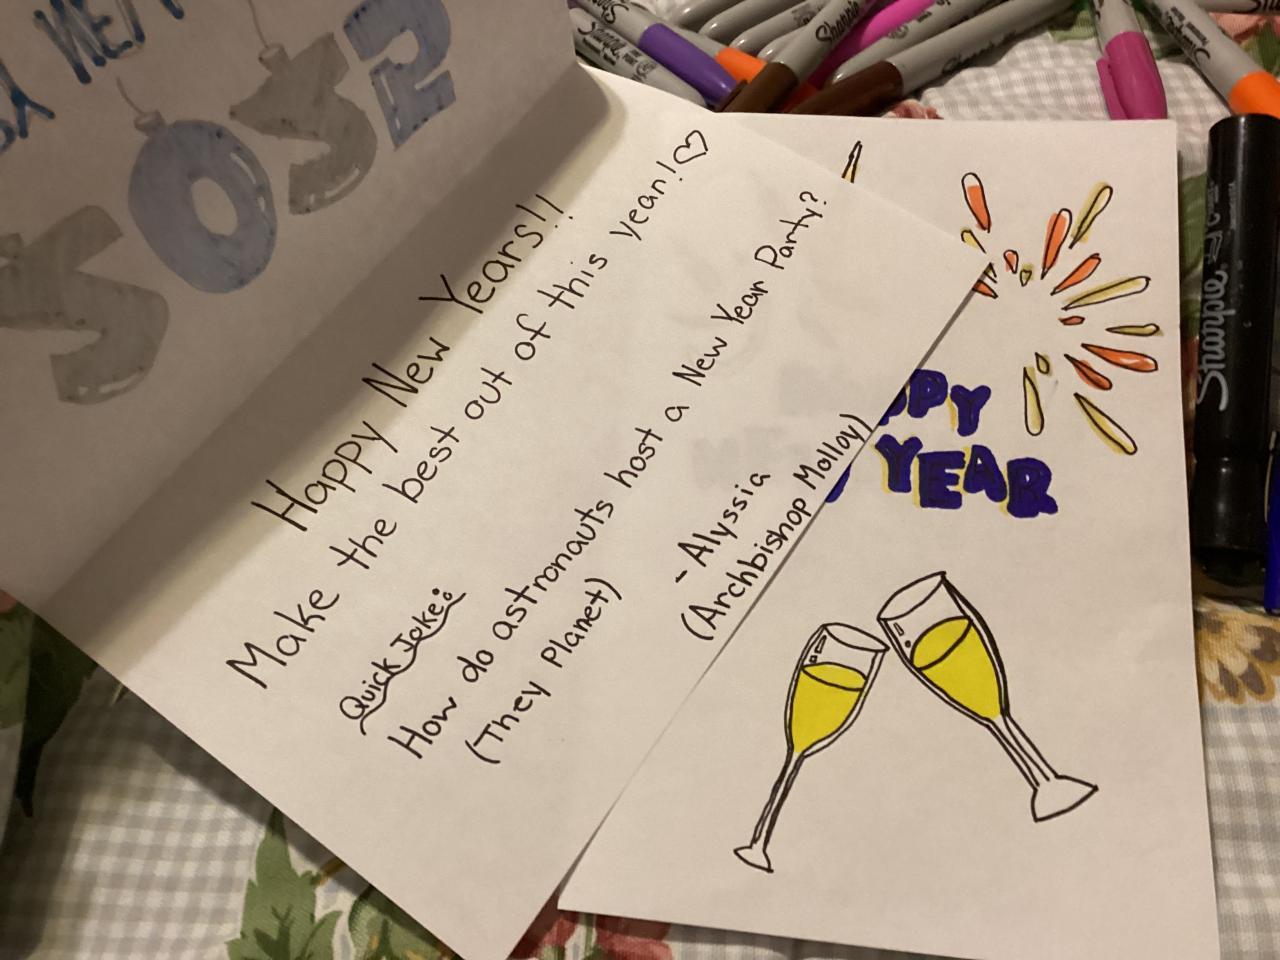 Happy New Years!!
Make the best out of this year! ♡
Quick Joke:
How do astronauts host a New Year Party?
(They Planet)
- Alyssia
(Archbishop Molloy)
PPY
YEAR
Sharpie
Sharpie
Sharpie